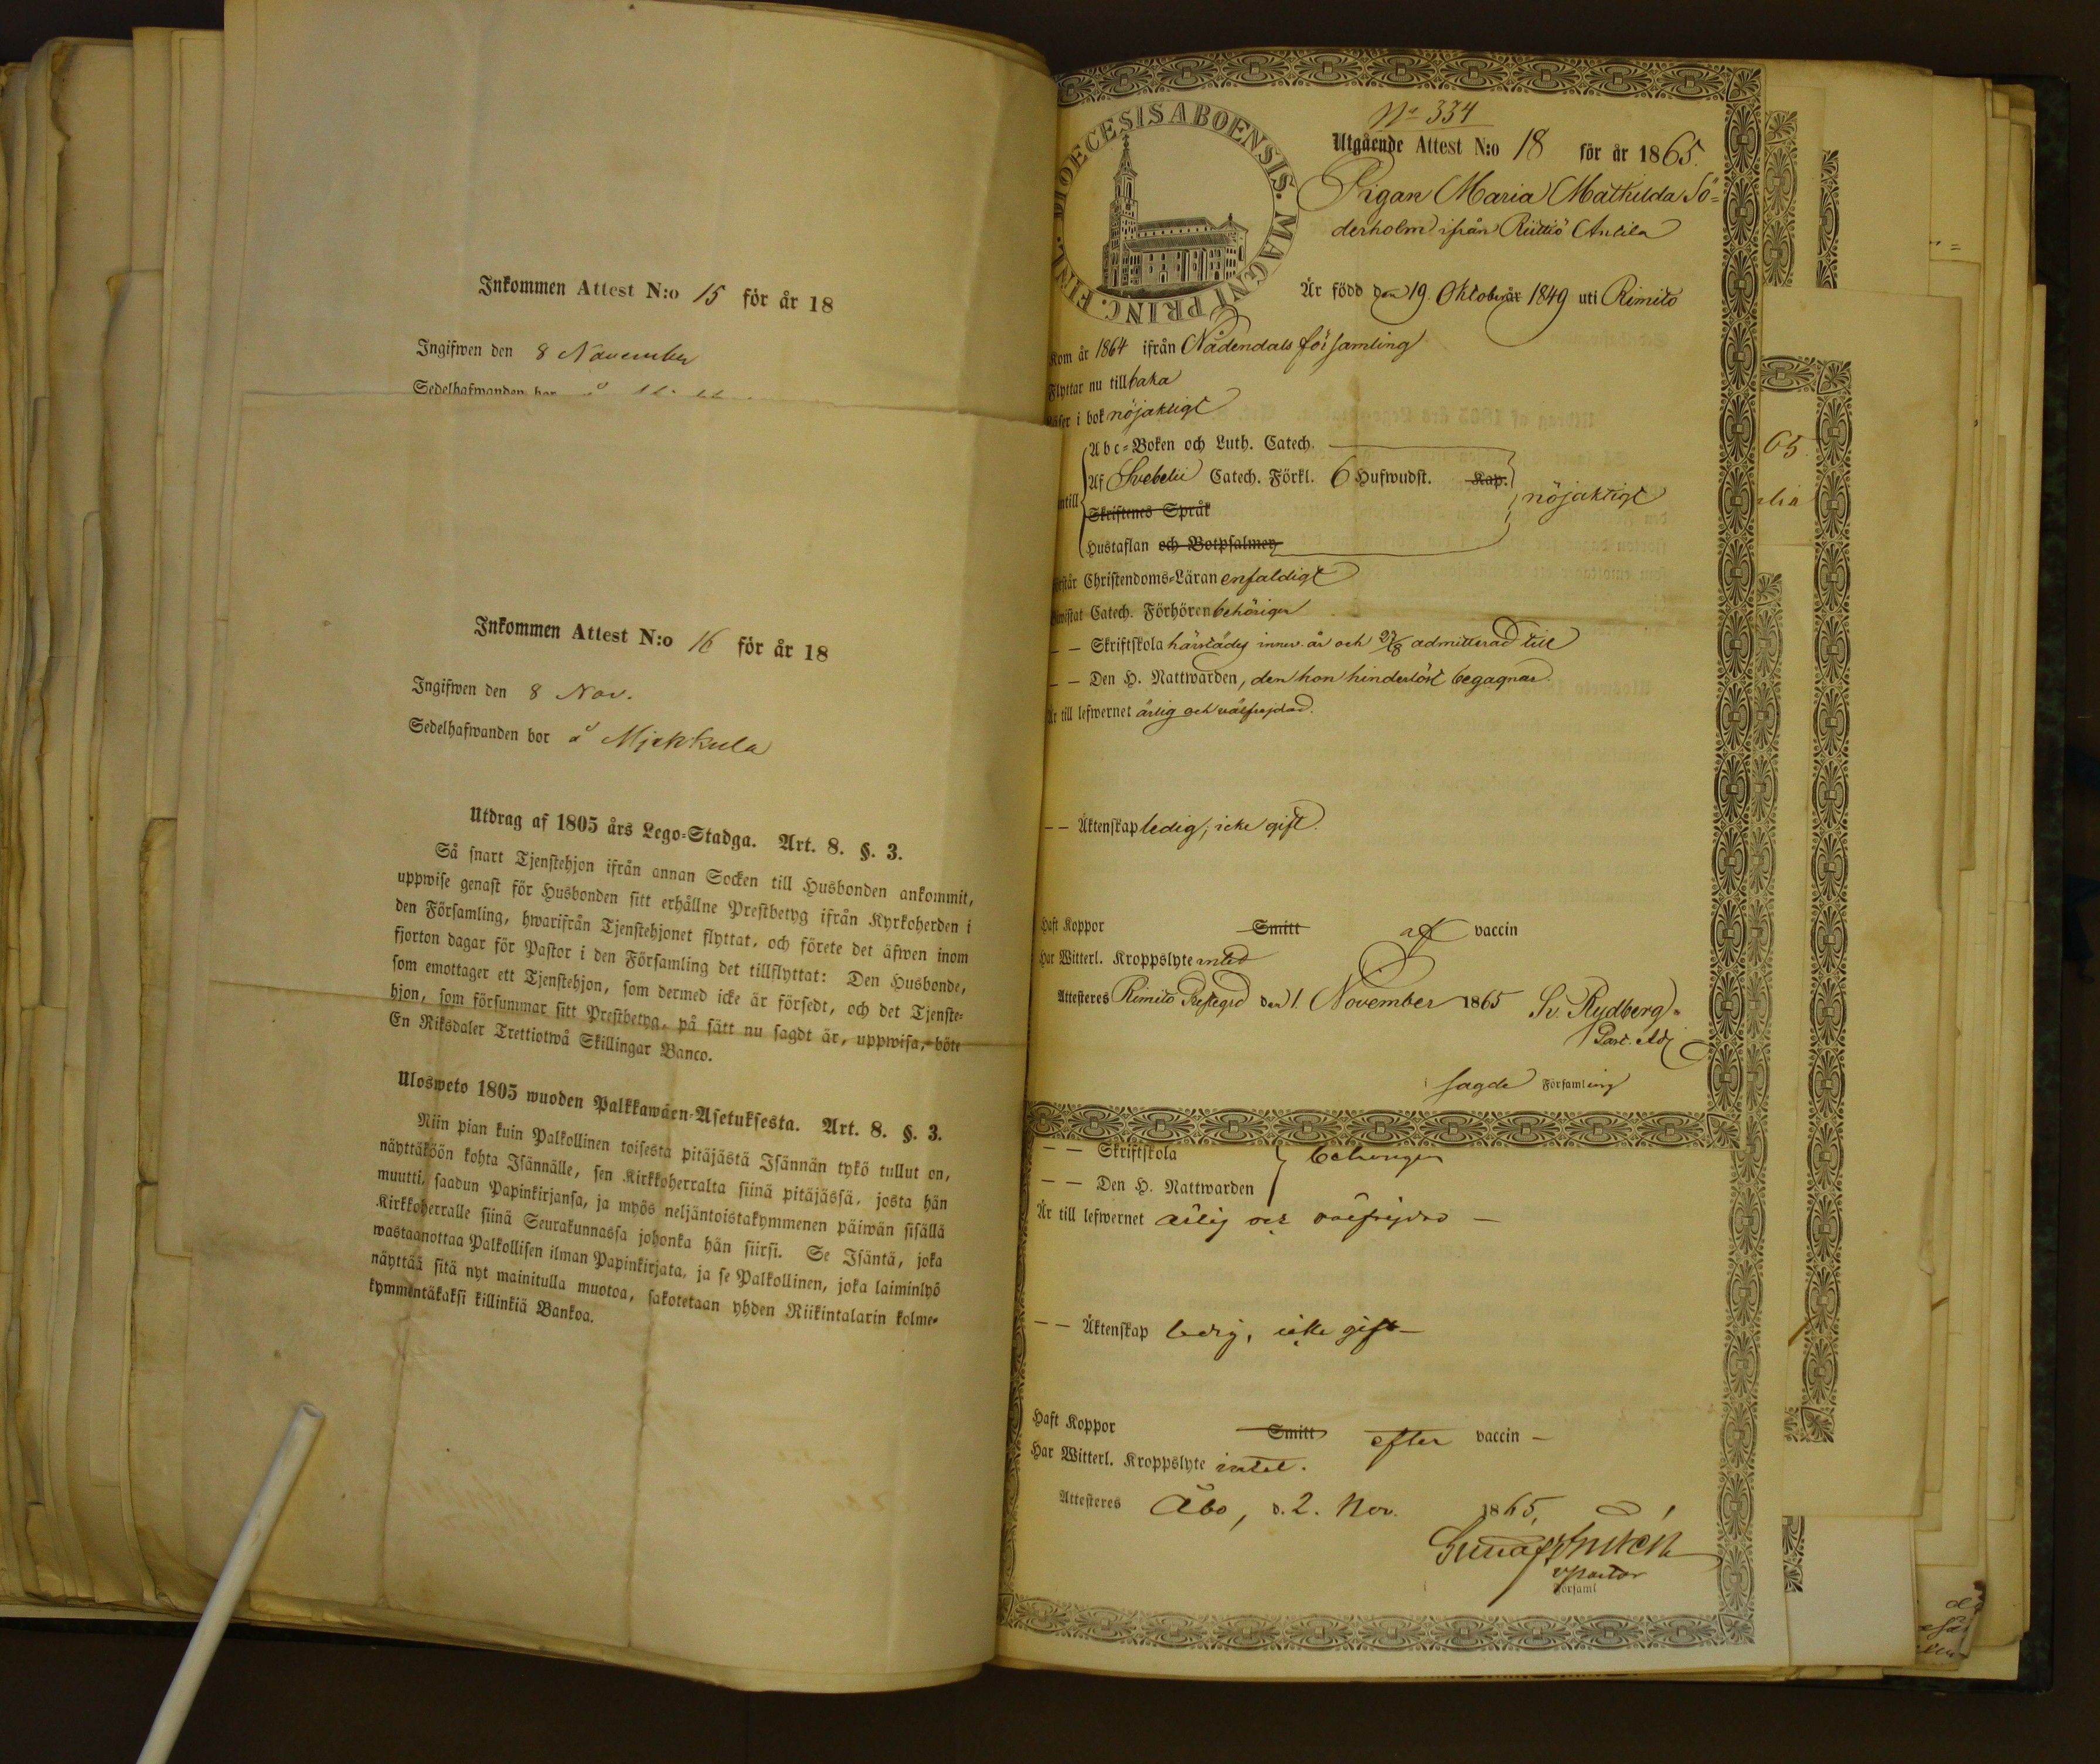 Inkommen Attest N:o 15 för år 18
Ingifwen den 8 November
Sedelhafwanden bor å
Inkommen Attest N:o 16 för år 18
Ingifwen den 8 Nov.
Sedelhafwanden bor å Mjekkula
Utdrag af 1805 års Lego-Stadga. Art. 8. §. 3.
Så snart Tjenstehjon ifrån annan Socken till Husbonden ankommit,
uppwise genast för Husbonden sitt erhållne Prestbetyg ifrån Kyrkoherden i
den Församling, hwarifrån Tjenstehjonet flyttat, och förete det äfwen inom
fjorton dagar för Pastor i den Församling det tillflyttat: Den Husbonde,
som emottager ett Tjenstehjon, som dermed icke är försedt, och det Tjenste-
hjon, som försummar sitt Prestbetyg, på sätt nu sagdt är, uppwisa, böte
En Riksdaler Trettiotwå Skillingar Banco.
Ulosweto 1805 wuoden Palkkawäen-Asetuksesta. Art. 8. §. 3.
Niin pian kuin Palkollinen toisesta pitäjästä Isännän tykö tullut on,
näyttäköön kohta Isännälle, sen Kirkkoherralta siinä pitäjässä, josta hän
muutti, saadun Papinkirjansa, ja myös neljäntoistakymmenen päiwän sisällä
Kirkkoherralle siinä Seurakunnassa johonka hän siirsi. Se Isäntä, joka
wastaanottaa Palkollisen ilman Papinkirjata, ja se Palkollinen, joka laiminlyö
näyttää sitä nyt mainitulla muotoa, sakotetaan yhden Riikintalarin kolme-
kymmentäkaksi killinkiä Bankoa.
DIOECESIS ABOENSIS. MAGNI PRINC. FINL.
No 334
Utgående Attest N:o 18 för år 1865.
Pigan Maria Mathilda Sö=
derholm ifrån Riittiö Antila
Är född den 19. Oktober år 1849 uti Rimito
Kom år 1864 ifrån Nådendals församling
Flyttar nu tillbaka
Läser i bok nöjaktigt
Abc-Boken och Luth. Catech.
Af Svebelii Catech. Förkl. 6 Hufwudst. Kap.
ntill nöjaktigt
Skriftenes Språk
Hustaflan och Botpsalmen
Förstår Christendoms-Läran enfaldigt
Bewistat Catech. Förhören behörigen
— — Skriftskola härstädes innev. år och 27/8 admitterad till
— — Den H. Nattwarden, den hon hinderlöst begagnar.
Är till lefwernet ärlig och välfrejdad.
— — Äktenskap ledig, icke gift.
Haft Koppor Smitt af vaccin
Har Witterl. Kroppslyte intet
Attesteres Rimito Prestegrd den 1. November 1865 Sv. Rydberg
Past. Adj
i sagde Församling
— — Skriftskola
behörigen
— — Den H. Nattwarden
Är till lefwernet ärlig och välfrejdad —
— — Äktenskap ledig, icke gift —
Haft Koppor Smitt efter vaccin —
Har Witterl. Kroppslyte intet.
Attesteres Åbo, d. 2. Nov. 1865,
v pastor
Församl
65